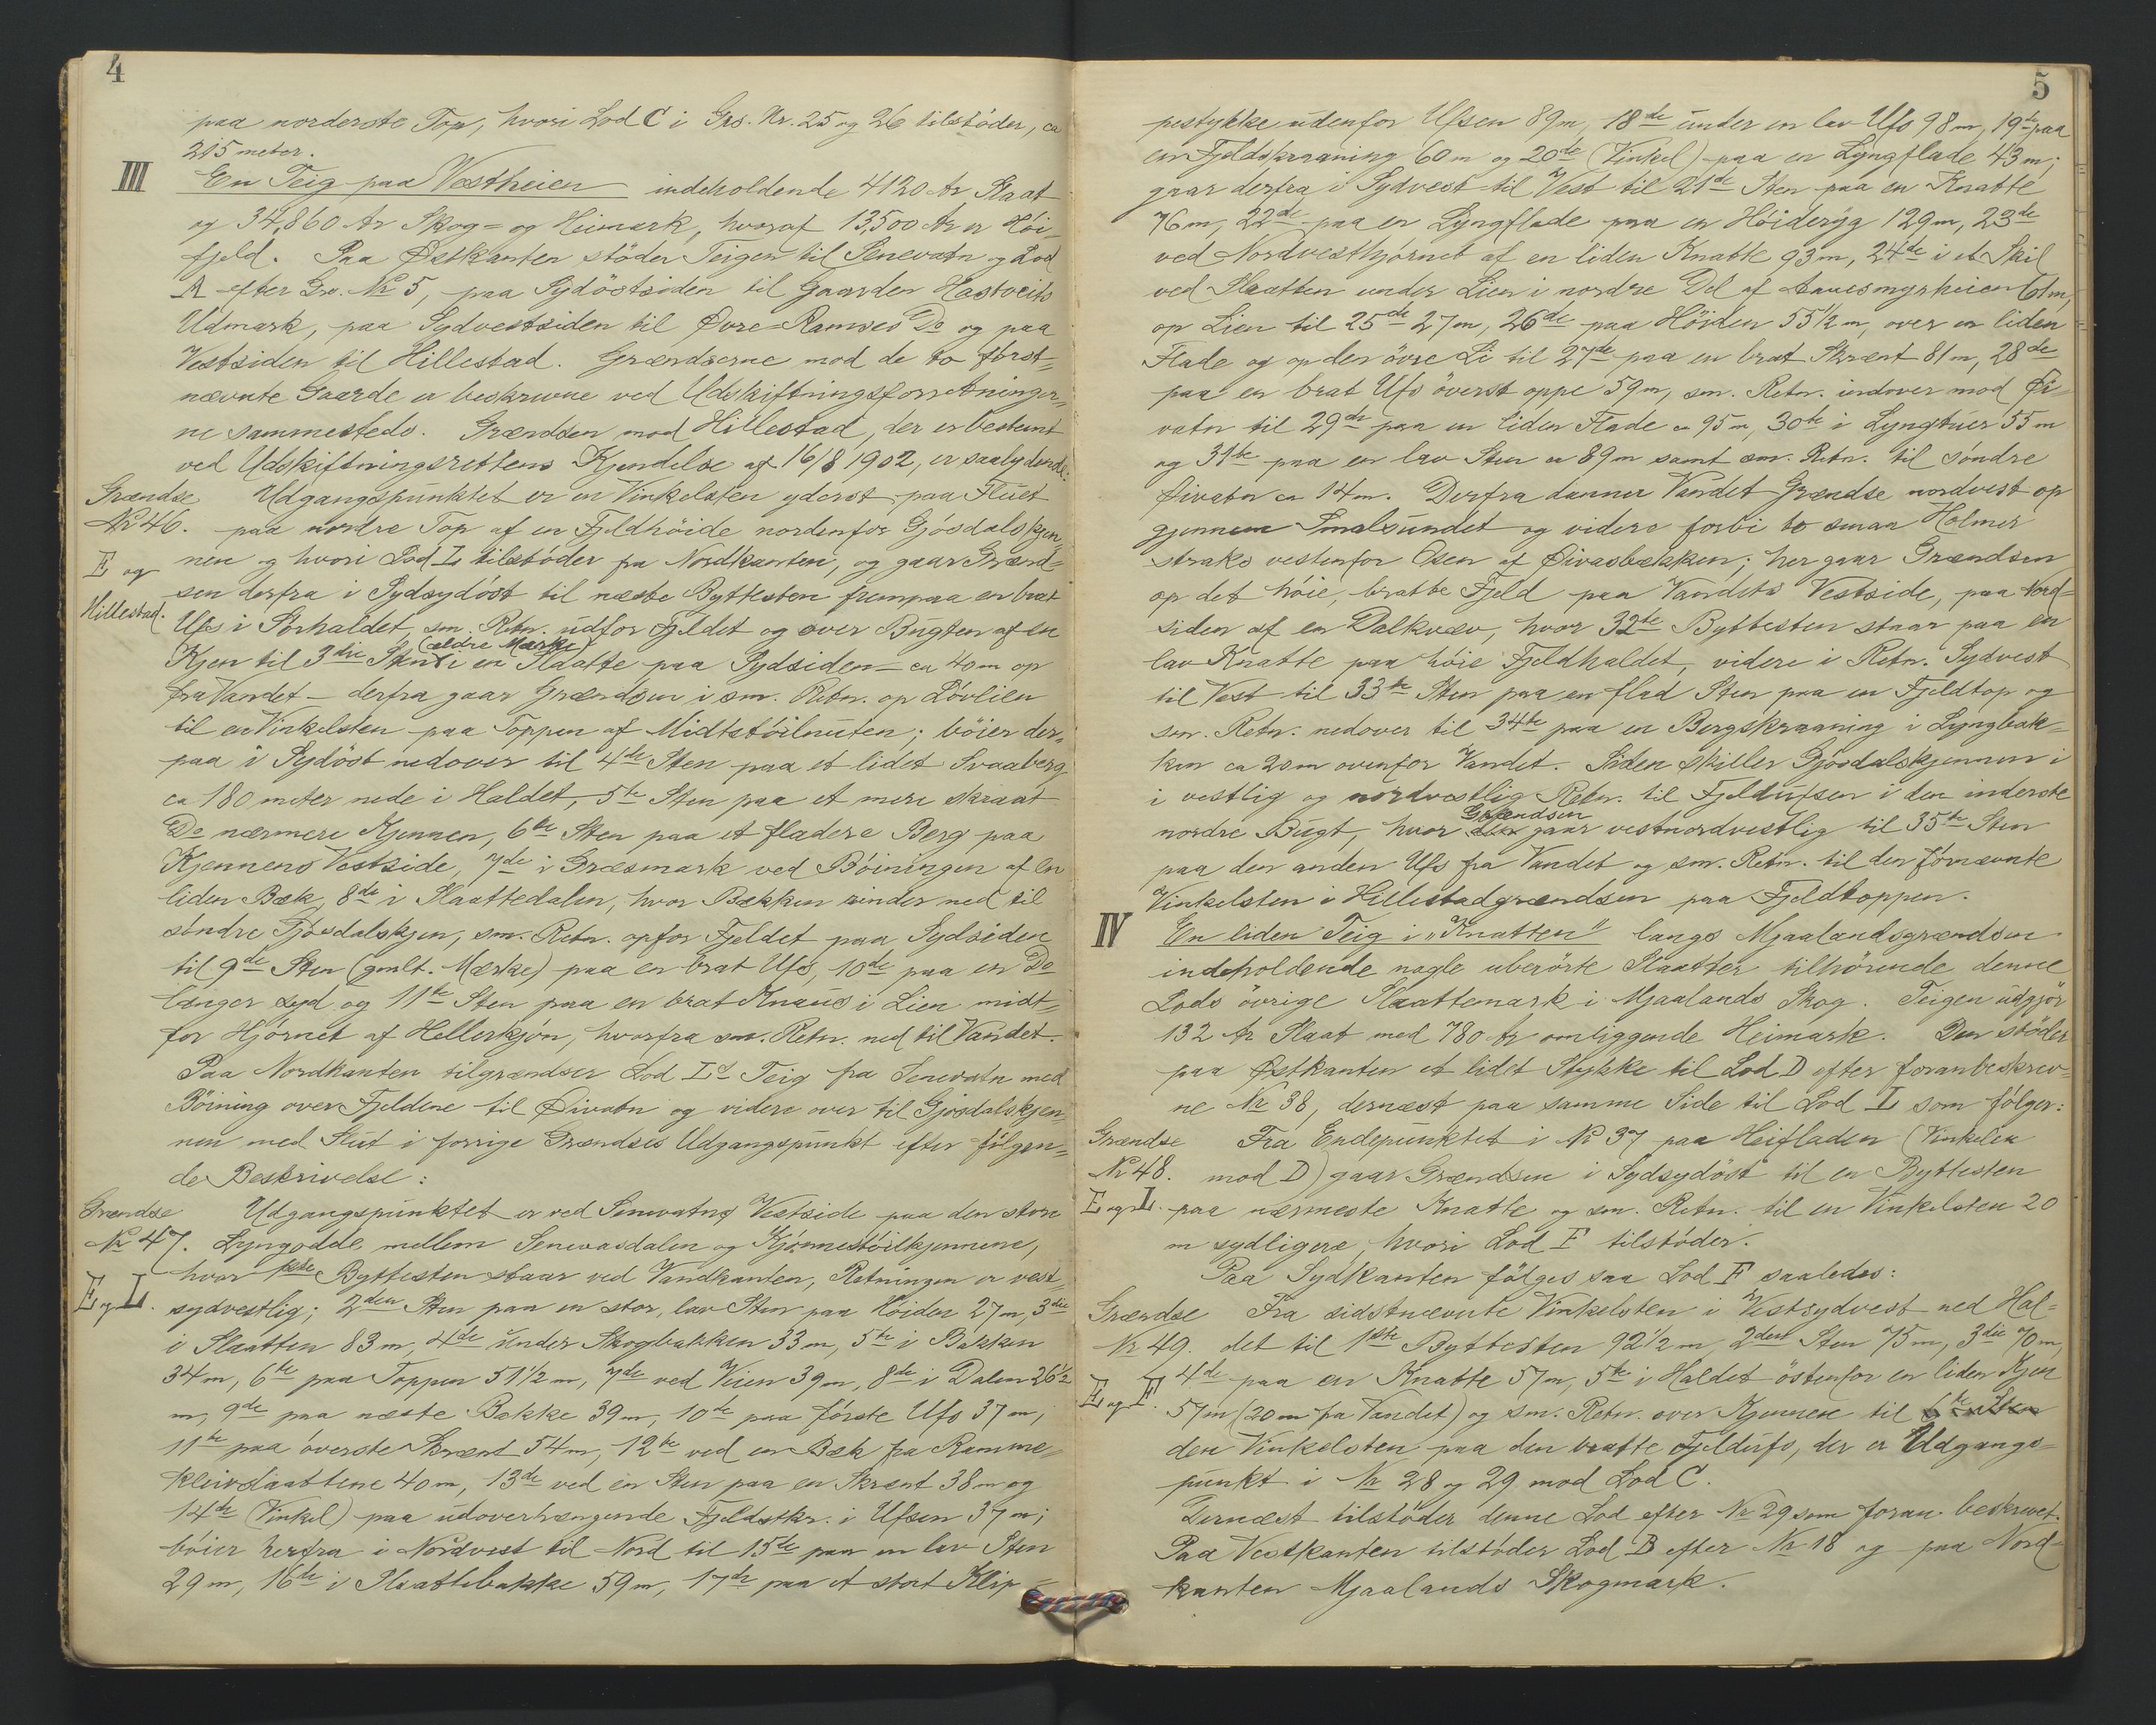 4
paa norderste Top, hvori Lod C i Grs. Nr. 25 og 26 tilstöder, ca
215 meter.
III En Teig paa Vestheien indeholdende 4120 Ar Slaat
og 34,860 Ar Skog- og Heimark, hvoraf 13,500 Ar er Höi-
fjeld. Paa Østkanten stöder Teigen til Senevatn og Lod
A efter Gr. No 5, paa Sydöstsiden til Gaarden Hastveits
Udmark, paa Sydvestsiden til Øvre-Ramses Do og paa
Vestsiden til Hillestad. Grændserne mod de to först-
nævnte Gaarde er beskrevne ved Udskiftningsforretninger-
ne sammesteds. Grændsen mod Hillestad, der er bestemt
ved Udskiftningsrettens Kjendelse af 16/8 1902, er saalydende:
Grændse Udgangspunktet er en Vinkelsten yderst paa Fluet
No 46. paa nordre Top af en Fjeldhöide nordenfor Gjösdalskjen-
E og nen og hvori Lod L tilstöder fra Nordkanten, og gaar Grænd-
Hillestad. sen derfra i Sydsydöst til næste Byttesten frempaa en brat
Ufs i Storhaldet, sm. Retn. udfor Fjeldet og over Bugten af en
(ældre Mærke)
Kjen til 3die Sten i en Slaatte paa Sydsiden - ca 40m op
fra Vandet - derfra gaar Grændsen i sm. Retn. op Lövlien
til en Vinkelsten paa Toppen af Midtstöilnuten; böier der-
paa i Sydöst nedover til 4de Sten paa et lidet Svaaberg
ca 180 meter nede i Haldet, 5te Sten paa et mere skraat
Do nærmere Kjennen, 6te Sten paa et fladere Berg paa
Kjennens Vestside, 7de i Græsmark ved Böiningen af en
liden Bæk, 8de i Slaattedalen, hvor Bækken rinder ned til
söndre Gjösdalskjen, sm. Retn. opfor Fjeldet paa Sydsiden
til 9de Sten (gmlt. Mærke) paa en brat Ufs, 10de paa en Do
længer syd og 11te Sten paa en brat Knaus i Lien midt-
for Hjörnet af Hellerkjön, hvorfra sm. Retn. ned til Vandet.
Paa Nordkanten tilgrændser Lod Ls Teig fra Senevatn med
Böining over Fjeldene til Øivatn og videre over til Gjösdalskjen-
nen med Slut i forrige Grændses Udgangspunkt efter fölgen-
de Beskrivelse:
Grændse Udgangspunktet er ved Senevatns Vestside paa den store
No 47. Lyngodde mellem Senevasdalen og Kjönnestöilkjennene,
hvor 1ste Byttesten staar ved Vandkanten, Retningen er vest-
E og L. sydvestlig; 2den Sten paa en stor, lav Sten paa Höiden 27m, 3die
i Slaatten 83m, 4de under Skogbakken 33m, 5te i Bakken
34m, 6te paa Toppen 51 1/2 m, 7de ved Veien 39m, 8de i Dalen 26 1/2
m, 9de paa næste Bakke 39m, 10de paa förste Ufs 37m,
11te paa överste Skrænt 54m, 12te ved en Bæk fra Ramme-
kleivslaattene 40m, 13de ved en Sten paa en Skrænt 38m og
14de (Vinkel) paa udoverhængende Fjeldstkr. i Ufsen 37m;
böier herfra i Nordvest til Nord til 15de paa en lav Sten
29m, 16de i Slaattebakke 59m, 17de paa et stort Klip-
5
pestykke udenfor Ufsen 89m, 18de under en lav Ufs 98m, 19de paa
en Fjeldskraaning 60m og 20de (Vinkel) paa en Lyngflade 43m;
gaar derfra i Sydvest til Vest til 21de Sten paa en Knatte
76m, 22de paa en Lyngflade paa en Höideryg 129m, 23de
ved Nordvesthjörnet af en liden Knatte 93m, 24de i et Skil
ved Slaatten under Lien i nordre Del af Aavesmyrheien 61m,
op Lien til 25de 27m, 26de paa Höiden 55 1/2 m, over en liden
Flade og op den övre Li til 27de paa en brat Skrænt 81m, 28de
paa en brat Ufs överst oppe 59m, sm. Retn. indover mod Øi-
vatn til 29de paa en liden Flade ca 95m, 30te i Lyngtuer 55m
og 31te paa en lav Sten ca 89m samt sm. Retn. til söndre
Øivatn ca 14m. Derfra danner Vandet Grændse nordvest op
gjennem Smalsundet og videre forbi to smaa Holmer
straks vestenfor Osen af Øivasbækken; her gaar Grændsen
op det höie, bratte Fjeld paa Vandets Vestside, paa Nord-
siden af en Dalkvæv, hvor 32te Byttesten staar paa en
lav Knatte paa höie Fjeldhaldet, videre i Retn. Sydvest
til Vest til 33te Sten paa en flad Sten paa en Fjeldtop og
sm. Retn. nedover til 34te paa en Bergskraaning i Lyngbak-
ken ca 20m ovenfor Vandet. Siden skiller Gjösdalskjennen i
i vestlig og nordvestlig Retn. til Fjeldufsen i den inderste
Grændsen
nordre Bugt, hvor den gaar vestnordvestlig til 35te Sten
paa den anden Ufs fra Vandet og sm. Retn. til den förnævnte
Vinkelsten i Hillestadgrændsen paa Fjeldtoppen.
IV En liden Teig i "Knatten" langs Mjaalandsgrændsen
indeholdende nogle uberörte Slaatter tilhörende denne
Lods övrige Slaattemark i Mjaalands Skog. Teigen udgjör
132 Ar Slaat med 780 Ar omliggende Heimark. Den stöder
paa Østkanten et lidet Stykke til Lod D efter foranbeskrev-
ne No 38, dernæst paa samme Side til Lod L som fölger:
Grændse Fra Endepunktet i No 37 paa Heifladen (Vinkelen
No 48. mod D) gaar Grændsen i Sydsydöst til en Byttesten
E og L. paa nærmeste Knatte og sm. Retn. til en Vinkelsten 20
m sydligere, hvori Lod F tilstöder.
Paa Sydkanten fölges saa Lod F saaledes:
Grændse Fra sidstnævnte Vinkelsten i Vestsydvest ned Hal-
No 49. det til 1ste Byttesten 92 1/2 m, 2den Sten 75m, 3die 70m,
4de paa en Knatte 57m, 5te i Haldet östenfor en liden Kjen
E og F. 57m (20m fra Vandet) og sm. Retn. over Kjennen til 6te Sten
den Vinkelsten paa den bratte Fjeldufs, der er Udgangs-
punkt i No 28 og 29 mod Lod C.
Dernæst tilstöder denne Lod efter No 29 som foran beskrevet.
Paa Vestkanten tilstöder Lod B efter No 18 og paa Nord-
kanten Mjaalands Skogmark.